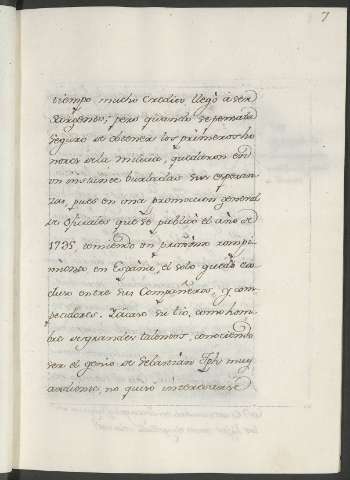 7
tiempo mucho credito llegó á ser
Sargento; pero quando se pensaba
seguro de obtener los primeros ho
nores de la milicia, quedaron en
un instante burladas sus esperan
zas, pues en una promocion general
de Oficiales que se publicó el año de
1735 temiendo un proximo rompi
miento en España, el solo quedó ex
cluso entre sus Compañeros, y com
petidores. Lazaro su tio, como hom
bre de grandes talentos, conociendo
ser el genio de Sebastian Jph muy
ardiente, no quiso interesarse